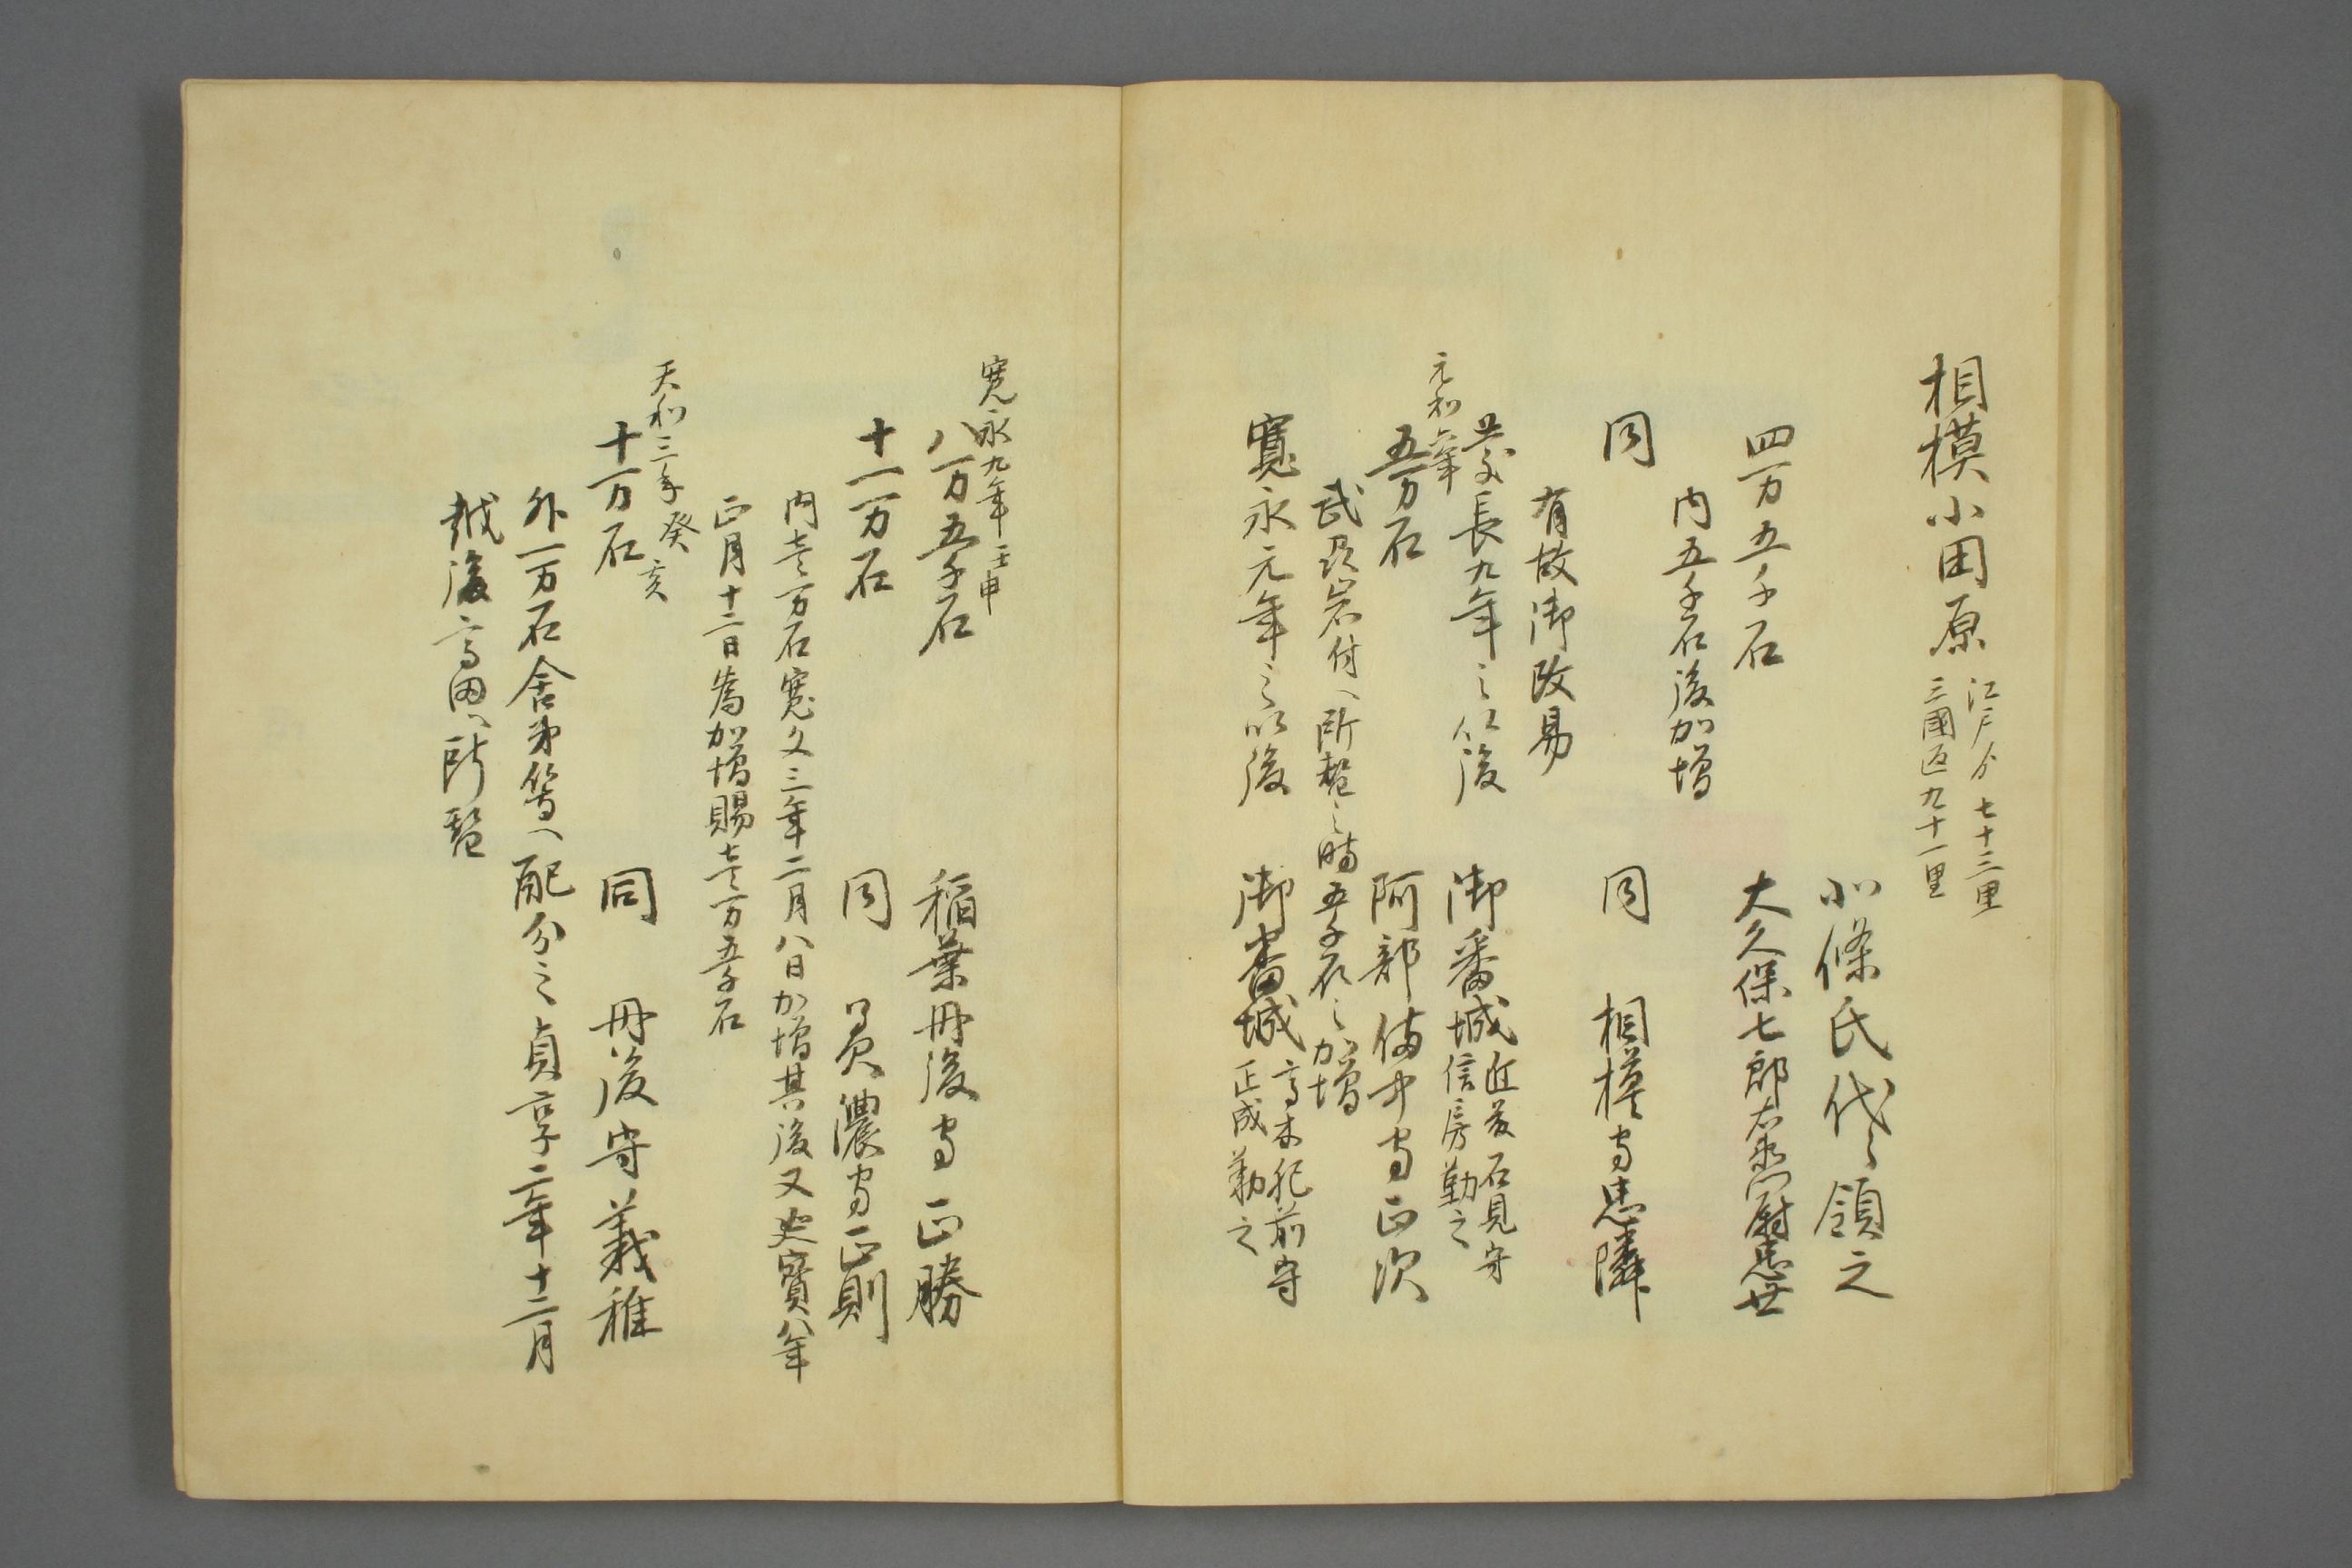 相模小田原
江戸ゟ七十三里
三國迄九十一里
北條氏代々領之
四万五千石
大久保七郎右衛門尉忠世
内五千石後加増
同
同 相模守忠隣
有故御改易
慶長九年之以後
御番城
近藤石見守
信房勤之
元和五年
五万石
阿部備中守正次
武州岩付へ所替之時五千石之加増
寛永元年之以後
御番城
高木肥前守
正成勤之
寛永九年壬申
八万五千石
稲葉丹後守正勝
十一万石
同 美濃守正則
内壱万石寛文三年二月八日加増其後又延寶八年
正月十二日為加増賜壱万五千石
天和三年癸亥
十万石
同 丹後守義稚
外一万石舎弟等へ配分之貞享二年十二月
越後高田へ所替